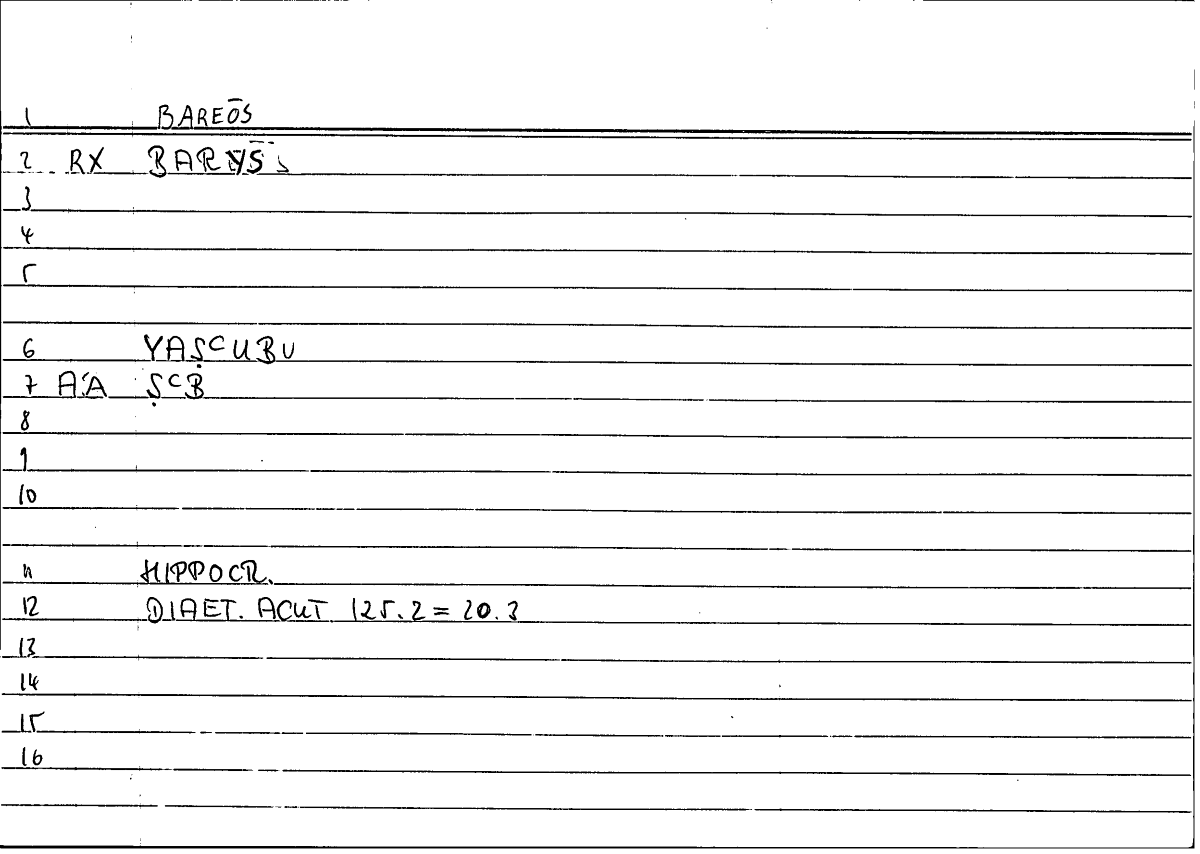 1 BAREŌS
2 RX BARYS
3
4
5
6 YAṢCUBU
7 AA ṢCB
8
9
10
11 HIPPOCR.
12 DIAET. ACUT 125.2 = 20.3
13
14
15
16